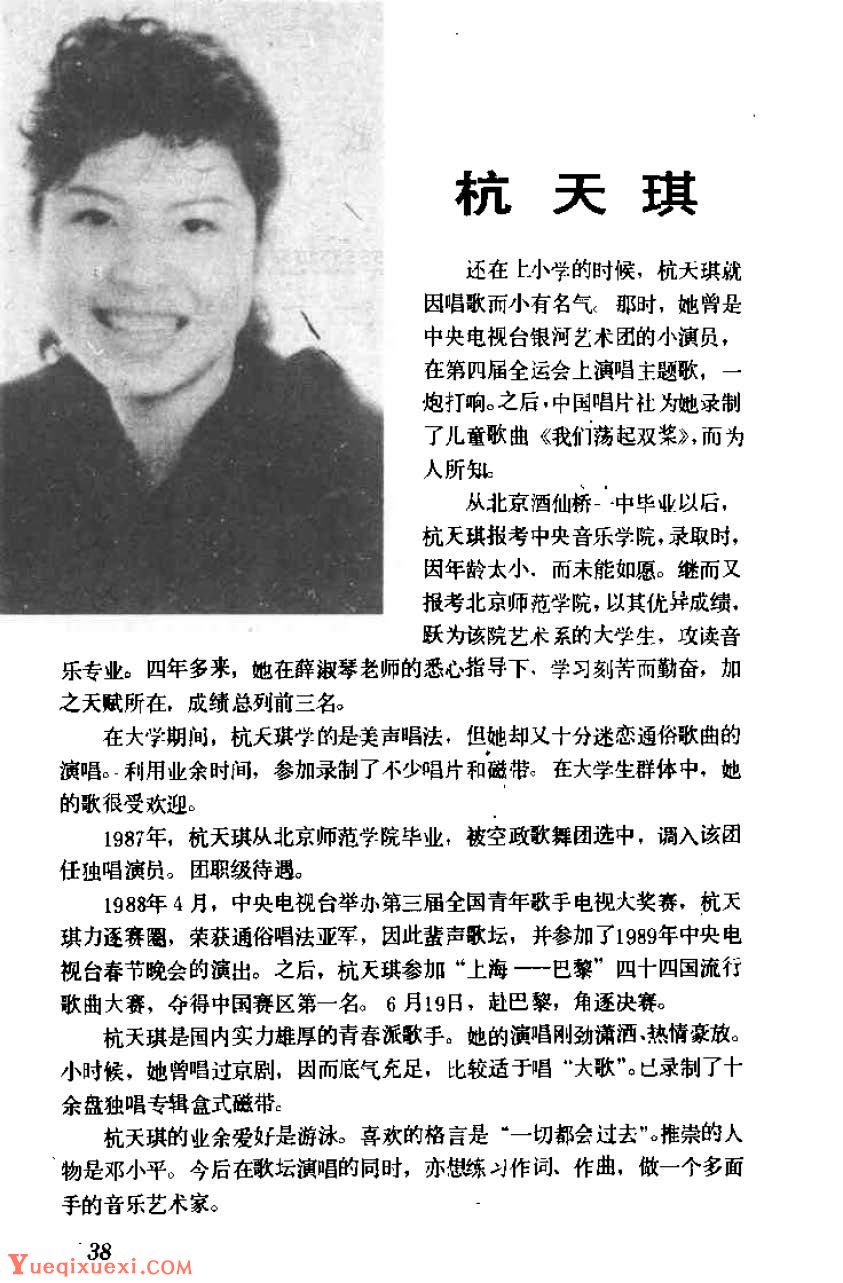 杭天琪
还在上小学的时候，杭天琪就
因唱歌而小有名气。那时，她曾是
中央电视台银河艺术团的小演员，
在第四届全运会上演唱主题歌，一
炮打响。之后，中国唱片社为她录制
了儿童歌曲《我们荡起双桨》，而为
人所知。
从北京酒仙桥一中毕业以后，
杭天琪报考中央音乐学院，录取时，
因年龄太小，而未能如愿。继而又
报考北京师范学院，以其优异成绩，
跃为该院艺术系的大学生，攻读音
乐专业。四年多来，她在薛淑琴老师的悉心指导下，学习刻苦而勤奋，加
之天赋所在，成绩总列前三名。
在大学期间，杭天琪学的是美声唱法，但她却又十分迷恋通俗歌曲的
演唱。利用业余时间，参加录制了不少唱片和磁带。在大学生群体中，她
的歌很受欢迎。
1987年，杭天琪从北京师范学院毕业，被空政歌舞团选中，调入该团
任独唱演员。团职级待遇。
1988年4月，中央电视台举办第三届全国青年歌手电视大奖赛，杭天
琪力逐赛圈，荣获通俗唱法亚军，因此蜚声歌坛，并参加了1989年中央电
视台春节晚会的演出。之后，杭天琪参加“上海——巴黎”四十四国流行
歌曲大赛，夺得中国赛区第一名。6月19日，赴巴黎，角逐决赛。
杭天琪是国内实力雄厚的青春派歌手。她的演唱刚劲潇洒、热情豪放。
小时候，她曾唱过京剧，因而底气充足，比较适于唱“大歌”。已录制了十
余盘独唱专辑盒式磁带。
杭天琪的业余爱好是游泳。喜欢的格言是“一切都会过去”。推崇的人
物是邓小平。今后在歌坛演唱的同时，亦想练习作词、作曲，做一个多面
手的音乐艺术家。
38
Yueqixuexi.com